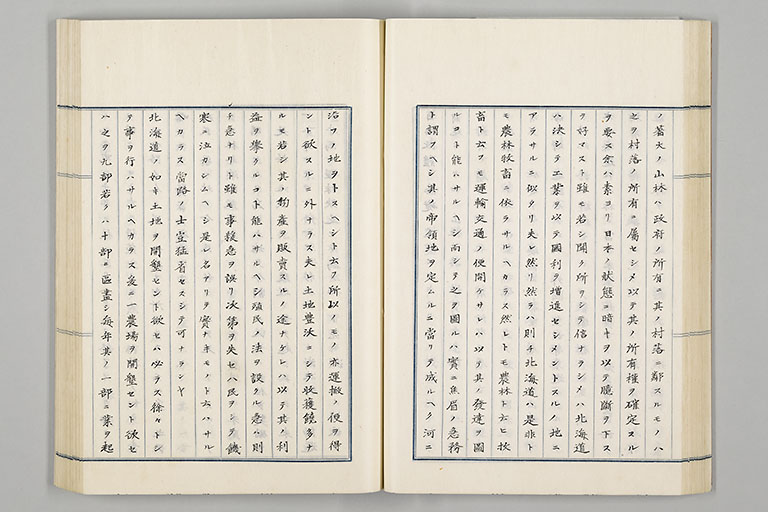 ノ著大ノ山林ハ政府ノ所有ニ其ノ村落ニ鄰スルモノハ
之ヲ村落ノ所有ニ屬セシメ以テ其ノ所有權ヲ確定スル
ヲ要ス余ハ素ヨリ日本ノ狀態ニ暗キヲ以テ臆斷ヲ下ス
ヲ好マスト雖モ若シ聞ク所ヲシテ信ナラシメハ北海道
ハ決シテ工業ヲ以テ國利ヲ增進セシメントスルノ地ニ
アラサルニ似タリ夫レ然リ然ラハ則チ北海道ハ是非ト
モ農林牧畜ニ依ラサルヘカラス然レトモ農林ト云ヒ牧
畜ト云フモ運輸交通ノ便開ケサレハ以テ其ノ發達ヲ圖
ルコト能ハサルヘシ而シテ之ヲ圖ルハ實ニ焦眉ノ急務
ト謂フヘシ其ノ帝領地ヲ定ムルニ當リテ成ルヘク河ニ
沿フノ地ヲトスヘシト云フ所以ノモノ亦運搬ノ便ヲ得
ント欲スルニ外ナラス夫レ土地豐沃ニシテ收穫饒多ナ
ルモ若シ其ノ物產ヲ販賣スルノ途ナケレハ以テ其ノ利
益ヲ擧クルコト能ハサルヘシ殖民ノ法ヲ設クル急ハ則
チ急ナリト雖モ事緩急ヲ誤リ次第ヲ失セハ民ヲシテ饑
寒ニ泣カシムヘシ是レ名アリテ實ナキモノト云ハサル
ヘカラス當路ノ士豈猛省セスシテ可ナランヤ
北海道ノ如キ土地ヲ開墾セント欲セハ必ラス徐々トシ
テ事ヲ行ハサルヘカラス爰ニ一農場ヲ開墾セント欲セ
ハ之ヲ九部若クハ十部ニ區畫シ每年其ノ一部ニ業ヲ起